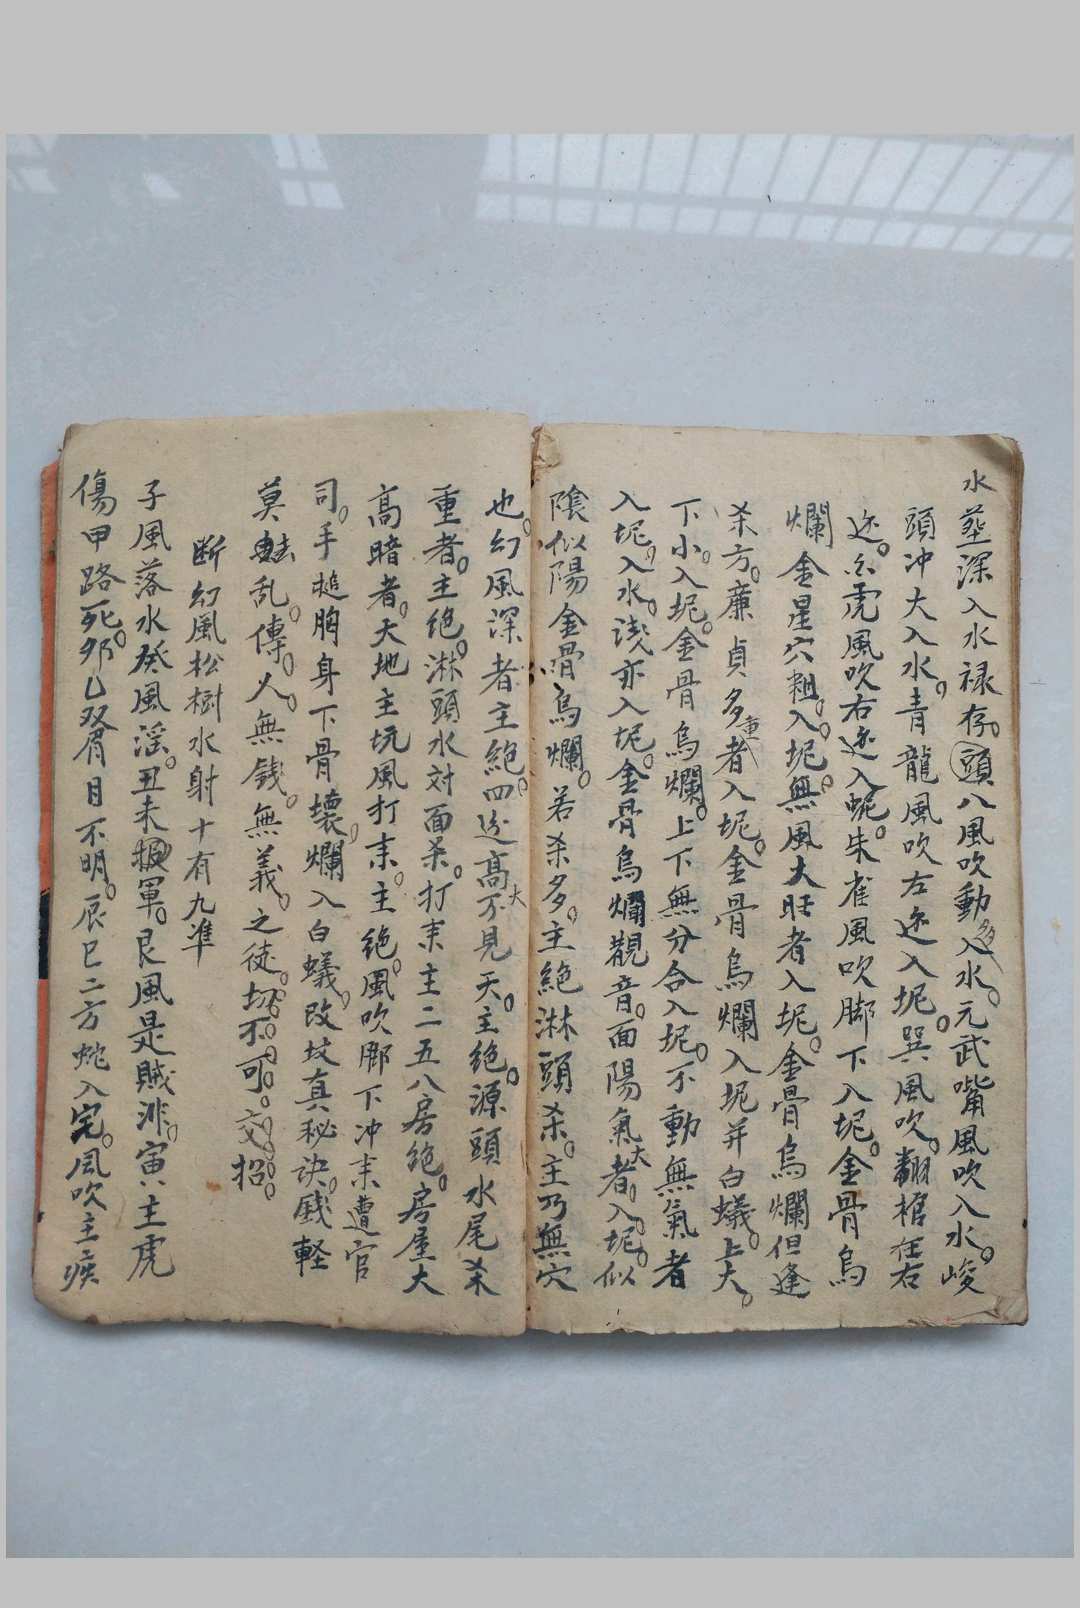 水塟深入水禄存。頭八風吹動多入水。元武嘴風吹入水。峻
頭冲大入水。青龍風吹左边入坭。巽風吹。翻棺在右
边。白虎風吹右边入坭。朱雀風吹脚下入坭。金骨烏
爛金星穴粗。入坭。無風大旺者入坭。金骨烏爛但逢
杀方。廉貞多重者入坭。金骨烏爛入坭并白蟻。上大。
下小。入坭。金骨烏爛。上下無分合入坭。不動無氣者
入坭。入水。浅亦入坭。金骨烏爛觀音。面陽氣大者。入坭。似
陰似陽金骨烏爛。若杀多。主絶淋頭杀。主乃無穴
也。幻風深者主絶。四边高大不見天。主絶。源頭水尾杀
重者。主绝。淋頭水対面杀。打来主二五八房絶。房屋大
高暗者。天地主坑風打来。主绝。風吹脚下冲来遭官
司。手搥胸身下骨壊。爛入白蟻。改坟真秘诀。銭軽
莫乱。傳。人。無銭。無義。之徒。切。不。可。交。招。
断幻風松樹水射十有九准
子風落水癸風淫。丑未軍。艮風是賊洂。寅主虎
傷甲路死。夘乙双眉目不明。辰巳二方蛇入宅。風吹主疾